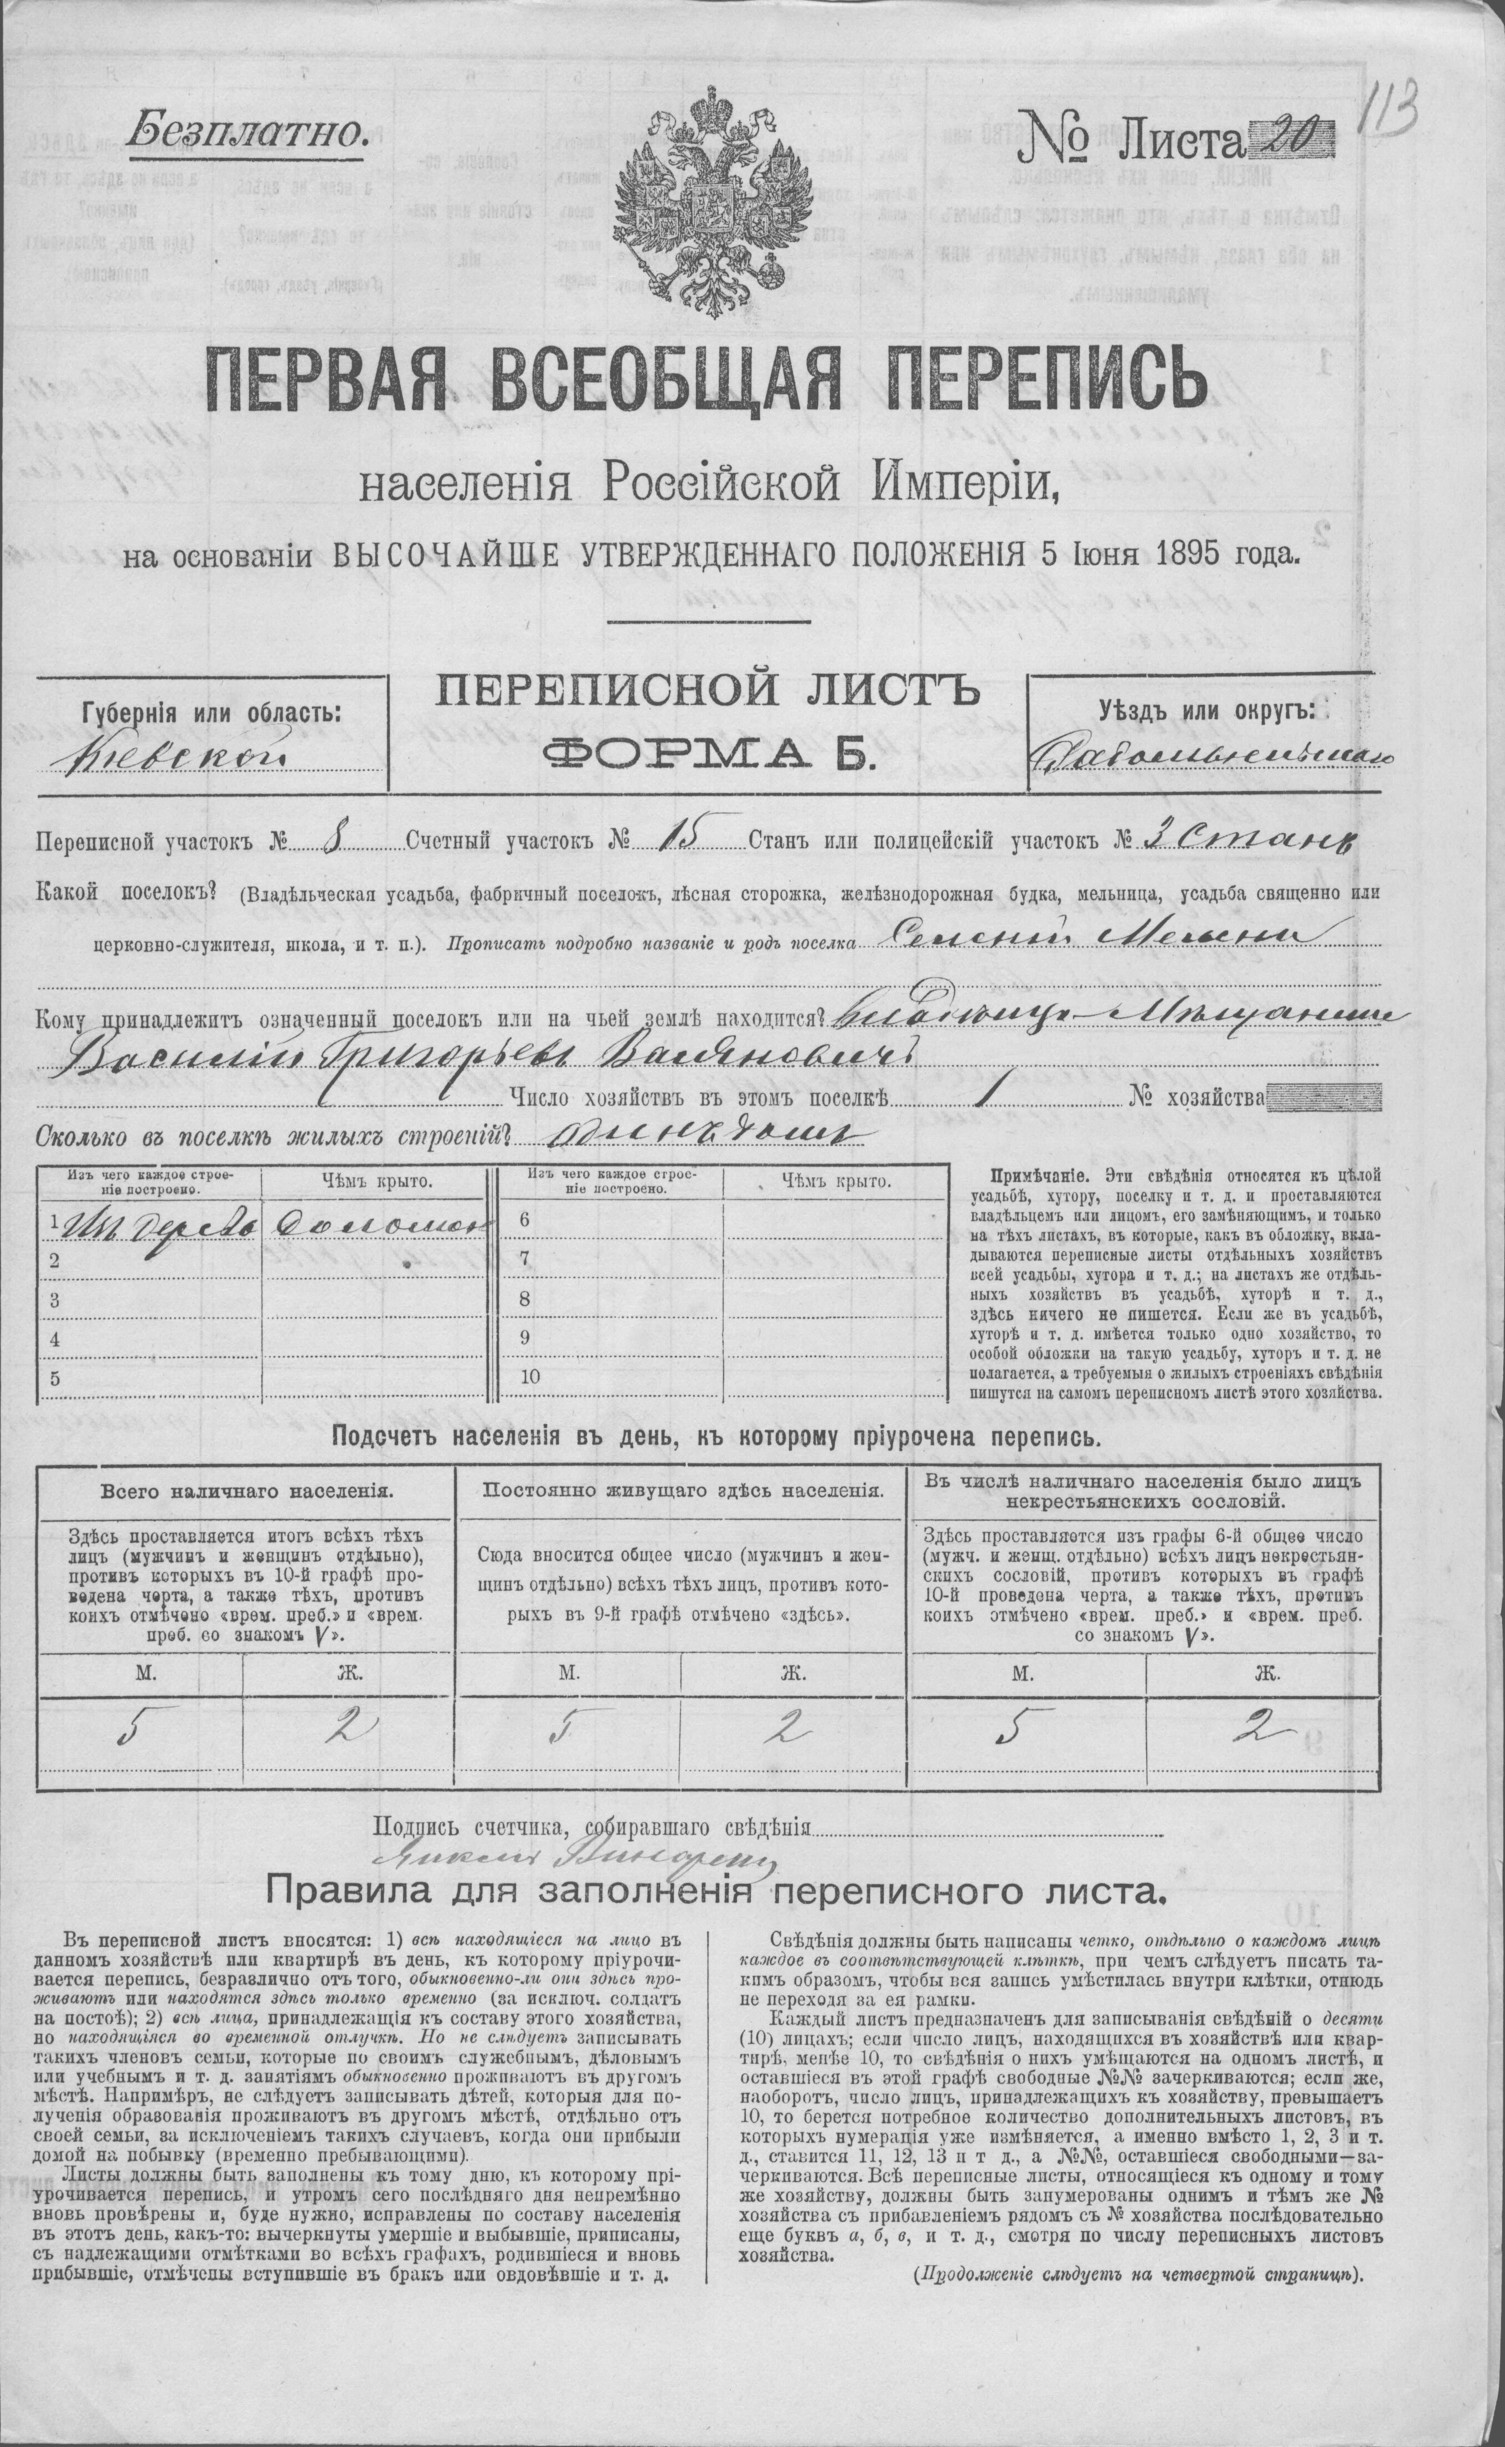 113
Безплатно.
№ Листа 20
ПЕРВАЯ ВСЕОБЩАЯ ПЕРЕПИСЬ
населенія Россійской Имперіи,
на основаніи ВЫСОЧАЙШЕ УТВЕРЖДЕННАГО ПОЛОЖЕНІЯ 5 Іюня 1895 года.
Губернія или область:
Кіевской
ПЕРЕПИСНОЙ ЛИСТЪ
ФОРМА Б.
Уѣздъ или округъ:
Переписной участокъ № 8 Счетный участокъ № 15 Станъ или полицейскій участокъ № 3 Станъ
Какой поселокъ? (Владѣльческая усадьба, фабричный поселокъ, лѣсная сторожка, желѣзнодорожная будка, мельница, усадьба священно или
церковно-служителя, школа, и т. п.). Прописать подробно названіе и родъ поселка
Кому принадлежитъ означенный поселокъ или на чьей землѣ находится?
Василій Григорьевъ
Число хозяйствъ въ этомъ поселкѣ 1 № хозяйства
Сколько въ поселкѣ жилыхъ строеній? одинъ домъ
Изъ чего каждое строе-
ніе построено.
Чѣмъ крыто.
Изъ чего каждое строе-
ніе построено.
Чѣмъ крыто.
1 Изъ дерева Соломой
2
3
4
5
6
7
8
9
10
Примѣчаніе. Эти свѣдѣнія относятся къ цѣлой
усадьбѣ, хутору, поселку и т. д. и проставляются
владѣльцемъ или лицомъ, его замѣняющимъ, и только
на тѣхъ листахъ, въ которые, какъ въ обложку, вкла-
дываются переписные листы отдѣльныхъ хозяйствъ
всей усадьбы, хутора и т. д.; на листахъ же отдѣль-
ныхъ хозяйствъ въ усадьбѣ, хуторѣ и т. д.,
здѣсь ничего не пишется. Если же въ усадьбѣ,
хуторѣ и т. д. имѣется только одно хозяйство, то
особой обложки на такую усадьбу, хуторъ и т. д. не
полагается, а требуемыя о жилыхъ строеніяхъ свѣдѣнія
пишутся на самомъ переписномъ листѣ этого хозяйства.
Подсчетъ населенія въ день, къ которому пріурочена перепись.
Всего наличнаго населенія.
Здѣсь проставляется итогъ всѣхъ тѣхъ
лицъ (мужчинъ и женщинъ отдѣльно),
противъ которыхъ въ 10-й графѣ про-
ведена черта, а также тѣхъ, противъ
коихъ отмѣчено «врем. преб.» и «врем.
преб. со знакомъ V».
М. Ж.
5 2
Постоянно живущаго здѣсь населенія.
Сюда вносится общее число (мужчинъ и жен-
щинъ отдѣльно) всѣхъ тѣхъ лицъ, противъ кото-
рыхъ въ 9-й графѣ отмѣчено «здѣсь».
М. Ж.
5 2
Въ числѣ наличнаго населенія было лицъ
некрестьянскихъ сословій.
Здѣсь проставляется изъ графы 6-й общее число
(мужч. и женщ. отдѣльно) всѣхъ лицъ некрестьян-
скихъ сословій, противъ которыхъ въ графѣ
10-й проведена черта, а также тѣхъ, противъ
коихъ отмѣчено «врем. преб.» и «врем. преб.
со знакомъ V».
М. Ж.
5 2
Подпись счетчика, собиравшаго свѣдѣнія
Правила для заполненія переписного листа.
Въ переписной листъ вносятся: 1) всѣ находящіеся на лицо въ
данномъ хозяйствѣ или квартирѣ въ день, къ которому пріурочи-
вается перепись, безразлично отъ того, обыкновенно-ли они здѣсь про-
живаютъ или находятся здѣсь только временно (за исключ. солдатъ
на постоѣ); 2) всѣ лица, принадлежащія къ составу этого хозяйства,
но находящіяся во временной отлучкѣ. Но не слѣдуетъ записывать
такихъ членовъ семьи, которые по своимъ служебнымъ, дѣловымъ
или учебнымъ и т. д. занятіямъ обыкновенно проживаютъ въ другомъ
мѣстѣ. Напримѣръ, не слѣдуетъ записывать дѣтей, которыя для по-
лученія образованія проживаютъ въ другомъ мѣстѣ, отдѣльно отъ
своей семьи, за исключеніемъ такихъ случаевъ, когда они прибыли
домой на побывку (временно пребывающими).
Листы должны быть заполнены къ тому дню, къ которому прі-
урочивается перепись, и утромъ сего послѣдняго дня непремѣнно
вновь провѣрены и, буде нужно, исправлены по составу населенія
въ этотъ день, какъ-то: вычеркнуты умершіе и выбывшіе, приписаны,
съ надлежащими отмѣтками во всѣхъ графахъ, родившіеся и вновь
прибывшіе, отмѣчены вступившіе въ бракъ или овдовѣвшіе и т. д.
Свѣдѣнія должны быть написаны четко, отдѣльно о каждомъ лицѣ
каждое въ соотвѣтствующей клѣткѣ, при чемъ слѣдуетъ писать та-
кимъ образомъ, чтобы вся запись умѣстилась внутри клѣтки, отнюдь
не переходя за ея рамки.
Каждый листъ предназначенъ для записыванія свѣдѣній о десяти
(10) лицахъ; если число лицъ, находящихся въ хозяйствѣ или квар-
тирѣ, менѣе 10, то свѣдѣнія о нихъ умѣщаются на одномъ листѣ, и
оставшіеся въ этой графѣ свободные №№ зачеркиваются; если же,
наоборотъ, число лицъ, принадлежащихъ къ хозяйству, превышаетъ
10, то берется потребное количество дополнительныхъ листовъ, въ
которыхъ нумерація уже измѣняется, а именно вмѣсто 1, 2, 3 и т.
д., ставится 11, 12, 13 и т д., а №№, оставшіеся свободными—за-
черкиваются. Всѣ переписные листы, относящіеся къ одному и тому
же хозяйству, должны быть занумерованы однимъ и тѣмъ же №
хозяйства съ прибавленіемъ рядомъ съ № хозяйства послѣдовательно
еще буквъ а, б, в, и т. д., смотря по числу переписныхъ листовъ
хозяйства.
(Продолженіе слѣдуетъ на четвертой страницѣ).